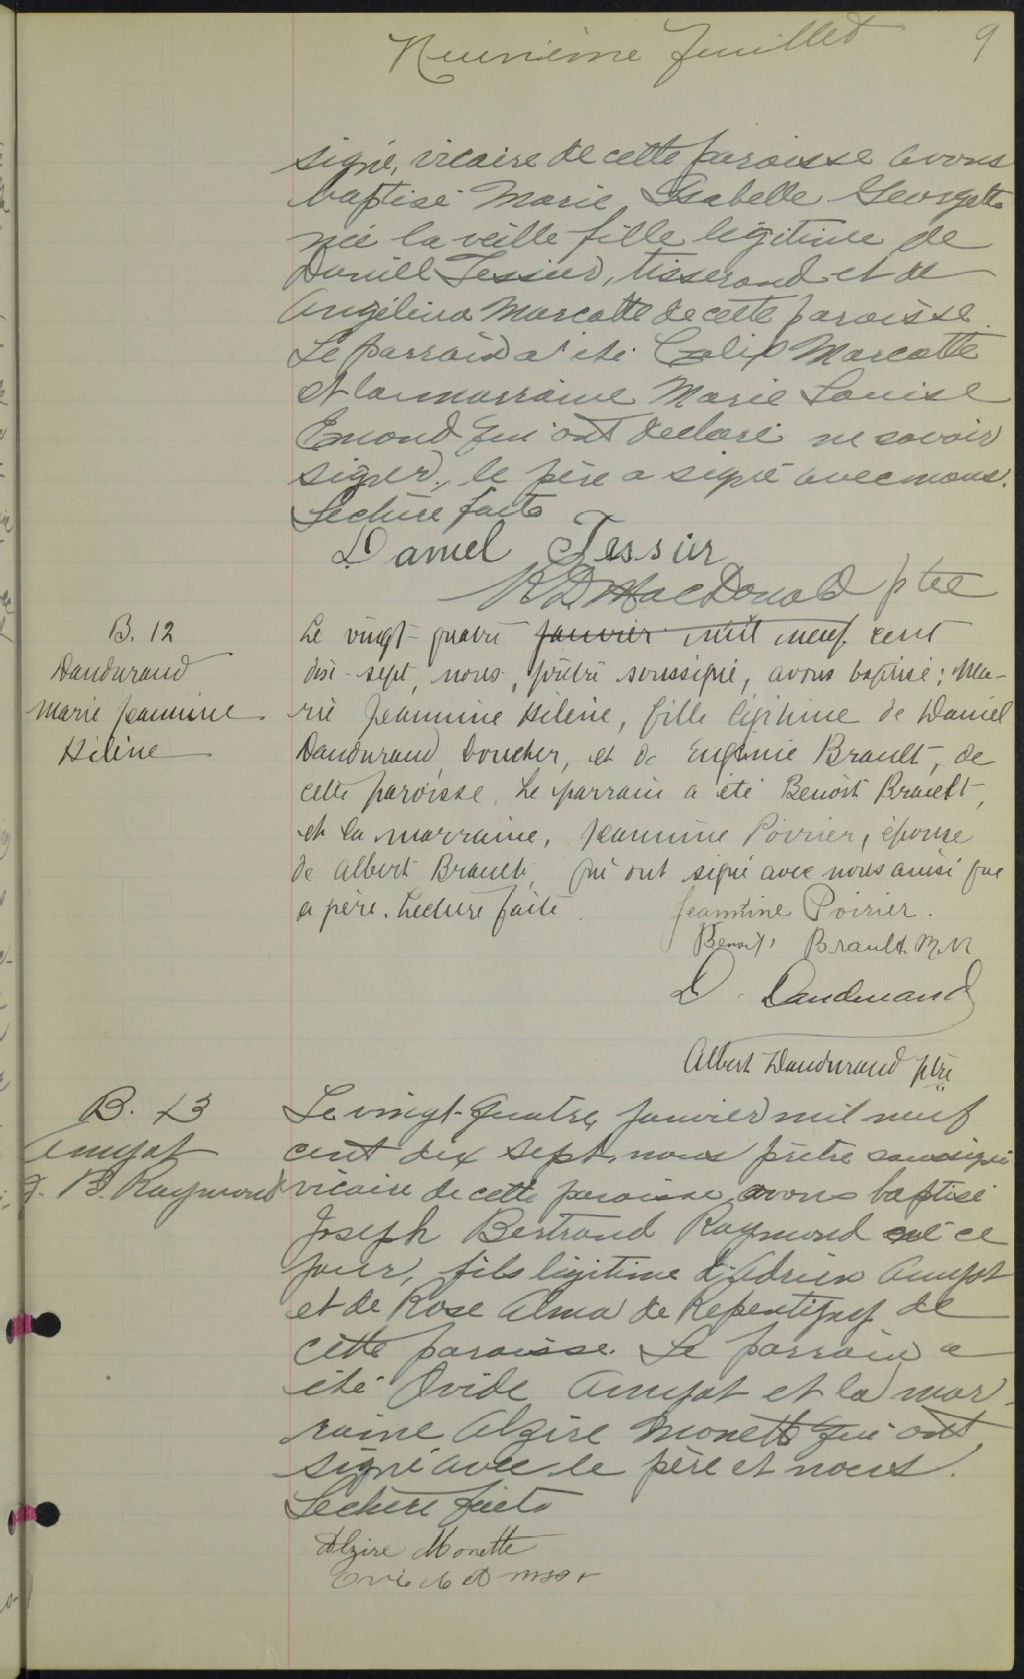 Neuvième feuillet 9
signé, vicaire de cette paroisse avons
baptisé Marie Isabelle Georgette
née la veille fille légitime de
Daniel Tessier, tisserand et de
Angélina Marcotte de cette paroisse.
Le parrain a été Calix Marcotte
et la marraine Marie Louise
Emond qui ont déclaré ne savoir
signer, le père a signé avec nous.
Lecture faite
Daniel Tessier
R D MacDonald ptre
B. 12
Dandurand
Marie Jeannine
Hélène
Le vingt-quatre janvier mil neuf cent
dix-sept, nous, prêtre soussigné, avons baptisé; Ma-
rie Jeannine Hélène, fille légitime de Daniel
Dandurand, boucher, et de Eugénie Brault, de
cette paroisse. Le parrain a été Benoit Brault,
et la marraine, Jeannine Poirier, épouse
de Albert Brault, qui ont signé avec nous ainsi que
le père. Lecture faite.
Jeannine Poirier.
Benoit Brault M.N
D. Dandurand
Albert Dandurand ptre
B. 13
Amyot
J. B. Raymond
Le vingt-quatre janvier mil neuf
cent dix sept, nous prêtre soussigné
vicaire de cette paroisse, avons baptisé
Joseph Bertrand Raymond né ce
jour, fils légitime d'Adrien Amyot
et de Rose Alma de Repentigny de
cette paroisse. Le parrain a
été Ovide Amyot et la mar-
raine Alzire Monette qui ont
signé avec le père et nous.
Lecture faite
Alzire Monette